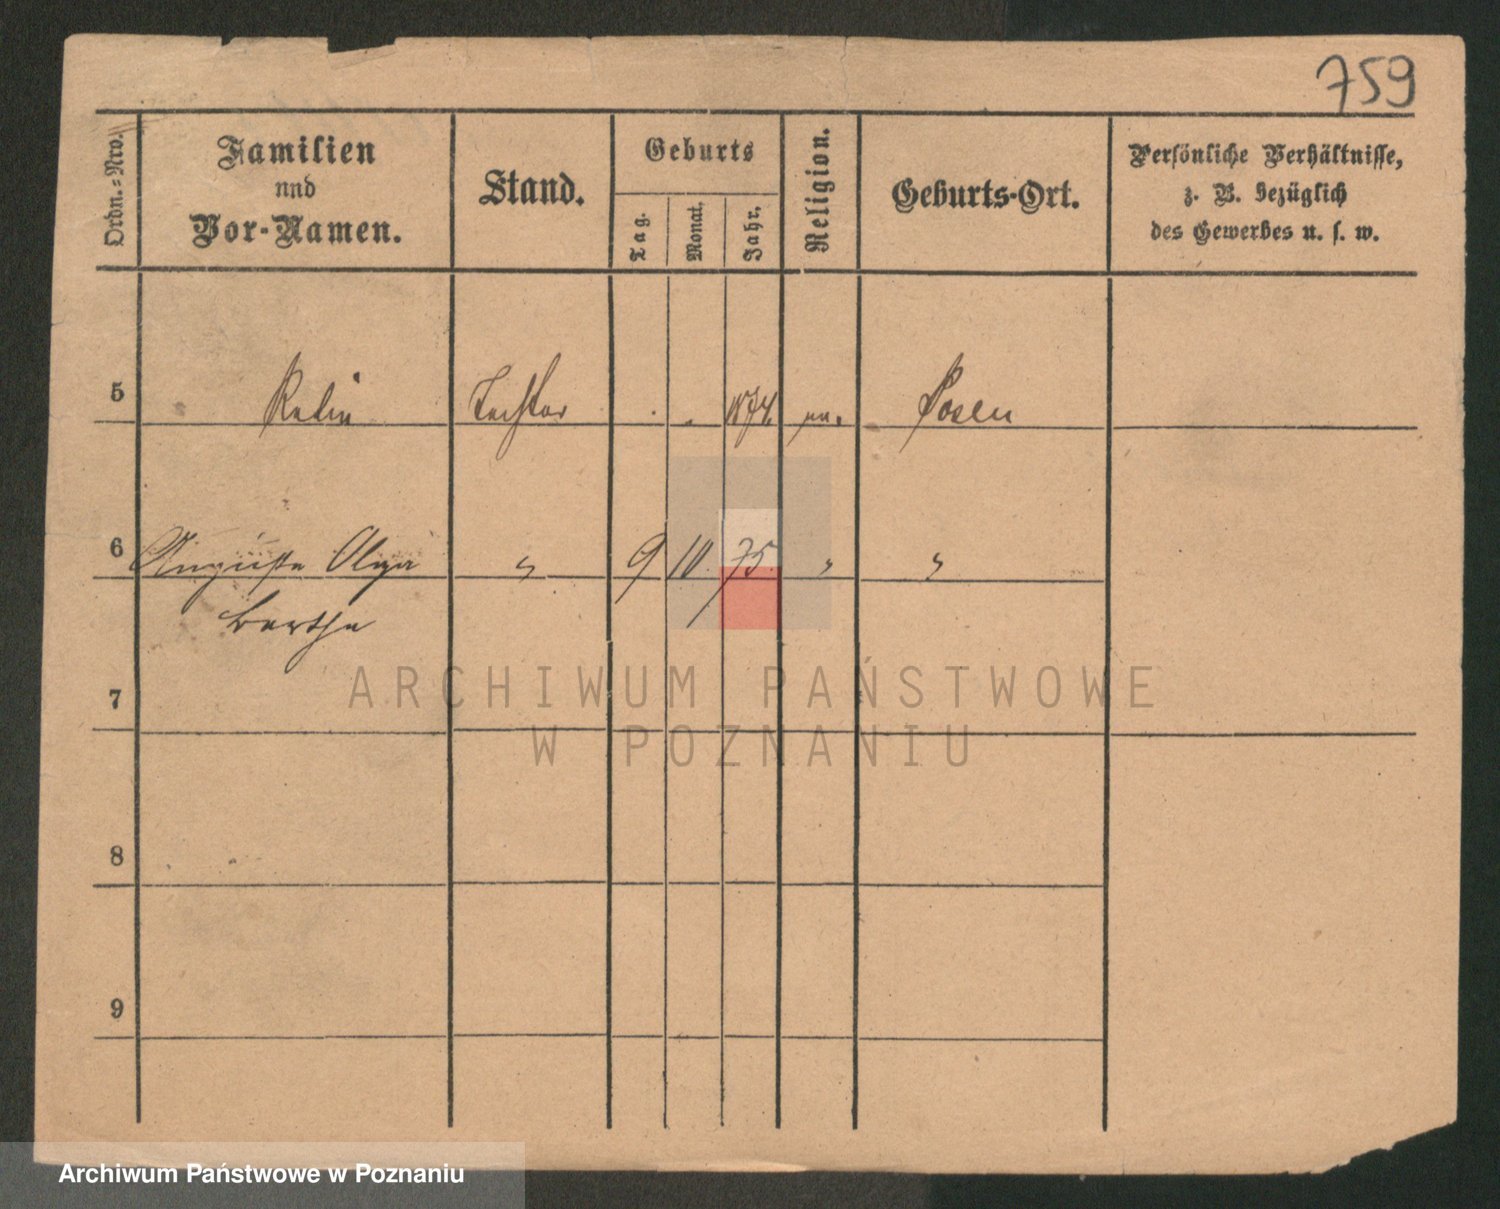 759
Ordn.=Nro.
Familien
nnd
Vor-Namen.
Stand.
Geburts
Tag.
Monat.
Jahr.
Religion.
Geburts-Ort.
Persönliche Verhältnisse,
z. B. bezüglich
des Gewerbes u. s. w.
5 Tochter 1874. Posen
6 Auguste Olga " 9 10. 75. " "
Berthe
7
8
9
ARCHIWUM PAŃSTWOWE
W POZNANIU
Archiwum Państwowe w Poznaniu